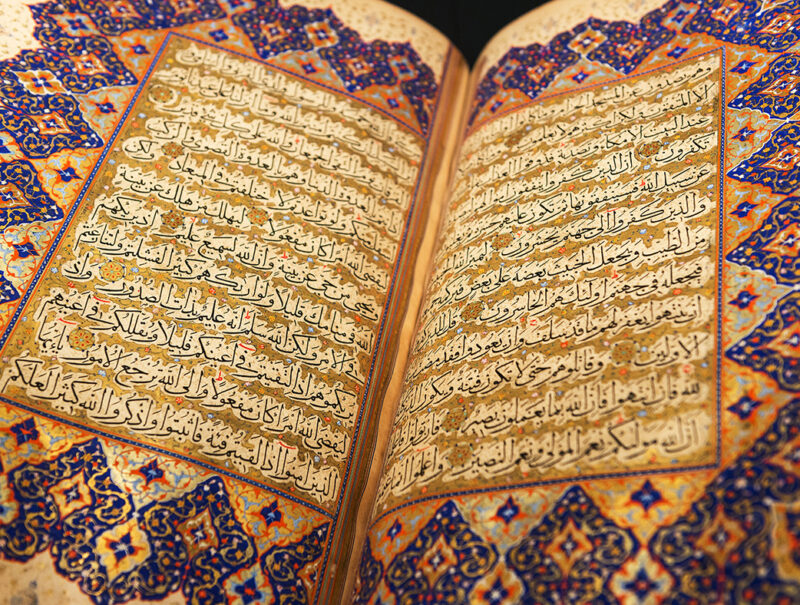 الا المتقون ولكن اكثرهم لا يعلمون وما كان صلاتهم
عند البيت الا مكاء وتصدية فذوقوا العذاب بما كنتم
تكفرون ان الذين كفروا ينفقون اموالهم ليصدوا
عن سبيل الله فسينفقونها ثم تكون عليهم حسرة ثم يغلبون
والذين كفروا الى جهنم يحشرون ليميز الله الخبيث
من الطيب ويجعل الخبيث بعضه على بعض فيركمه جميعا
فيجعله في جهنم اولئك هم الخاسرون قل للذين كفروا
ان ينتهوا يغفر لهم ما قد سلف وان يعودوا فقد مضت
الاولين وقاتلوهم حتى لا تكون فتنة ويكون الدين كله
لله فان انتهوا فان الله بما يعملون بصير وان تولوا فاعلموا
ان الله موليكم نعم المولى ونعم النصير واعلموا انما
منكم ولو تواعدتم لاختلفتم في الميعاد ولكن
ليقضي الله امرا كان مفعولا ليهلك من هلك عن بينة
ويحيى من حي عن بينة وان الله لسميع عليم اذ يريكهم
الله في منامك قليلا ولو اراكهم كثيرا لفشلتم ولتنازعتم
في الامر ولكن الله سلم انه عليم بذات الصدور واذ
يريكموهم اذ التقيتم في اعينكم قليلا ويقللكم في اعينهم
ليقضي الله امرا كان مفعولا والى الله ترجع الامور يا ايها
الذين امنوا اذا لقيتم فئة فاثبتوا واذكروا الله كثيرا لعلكم